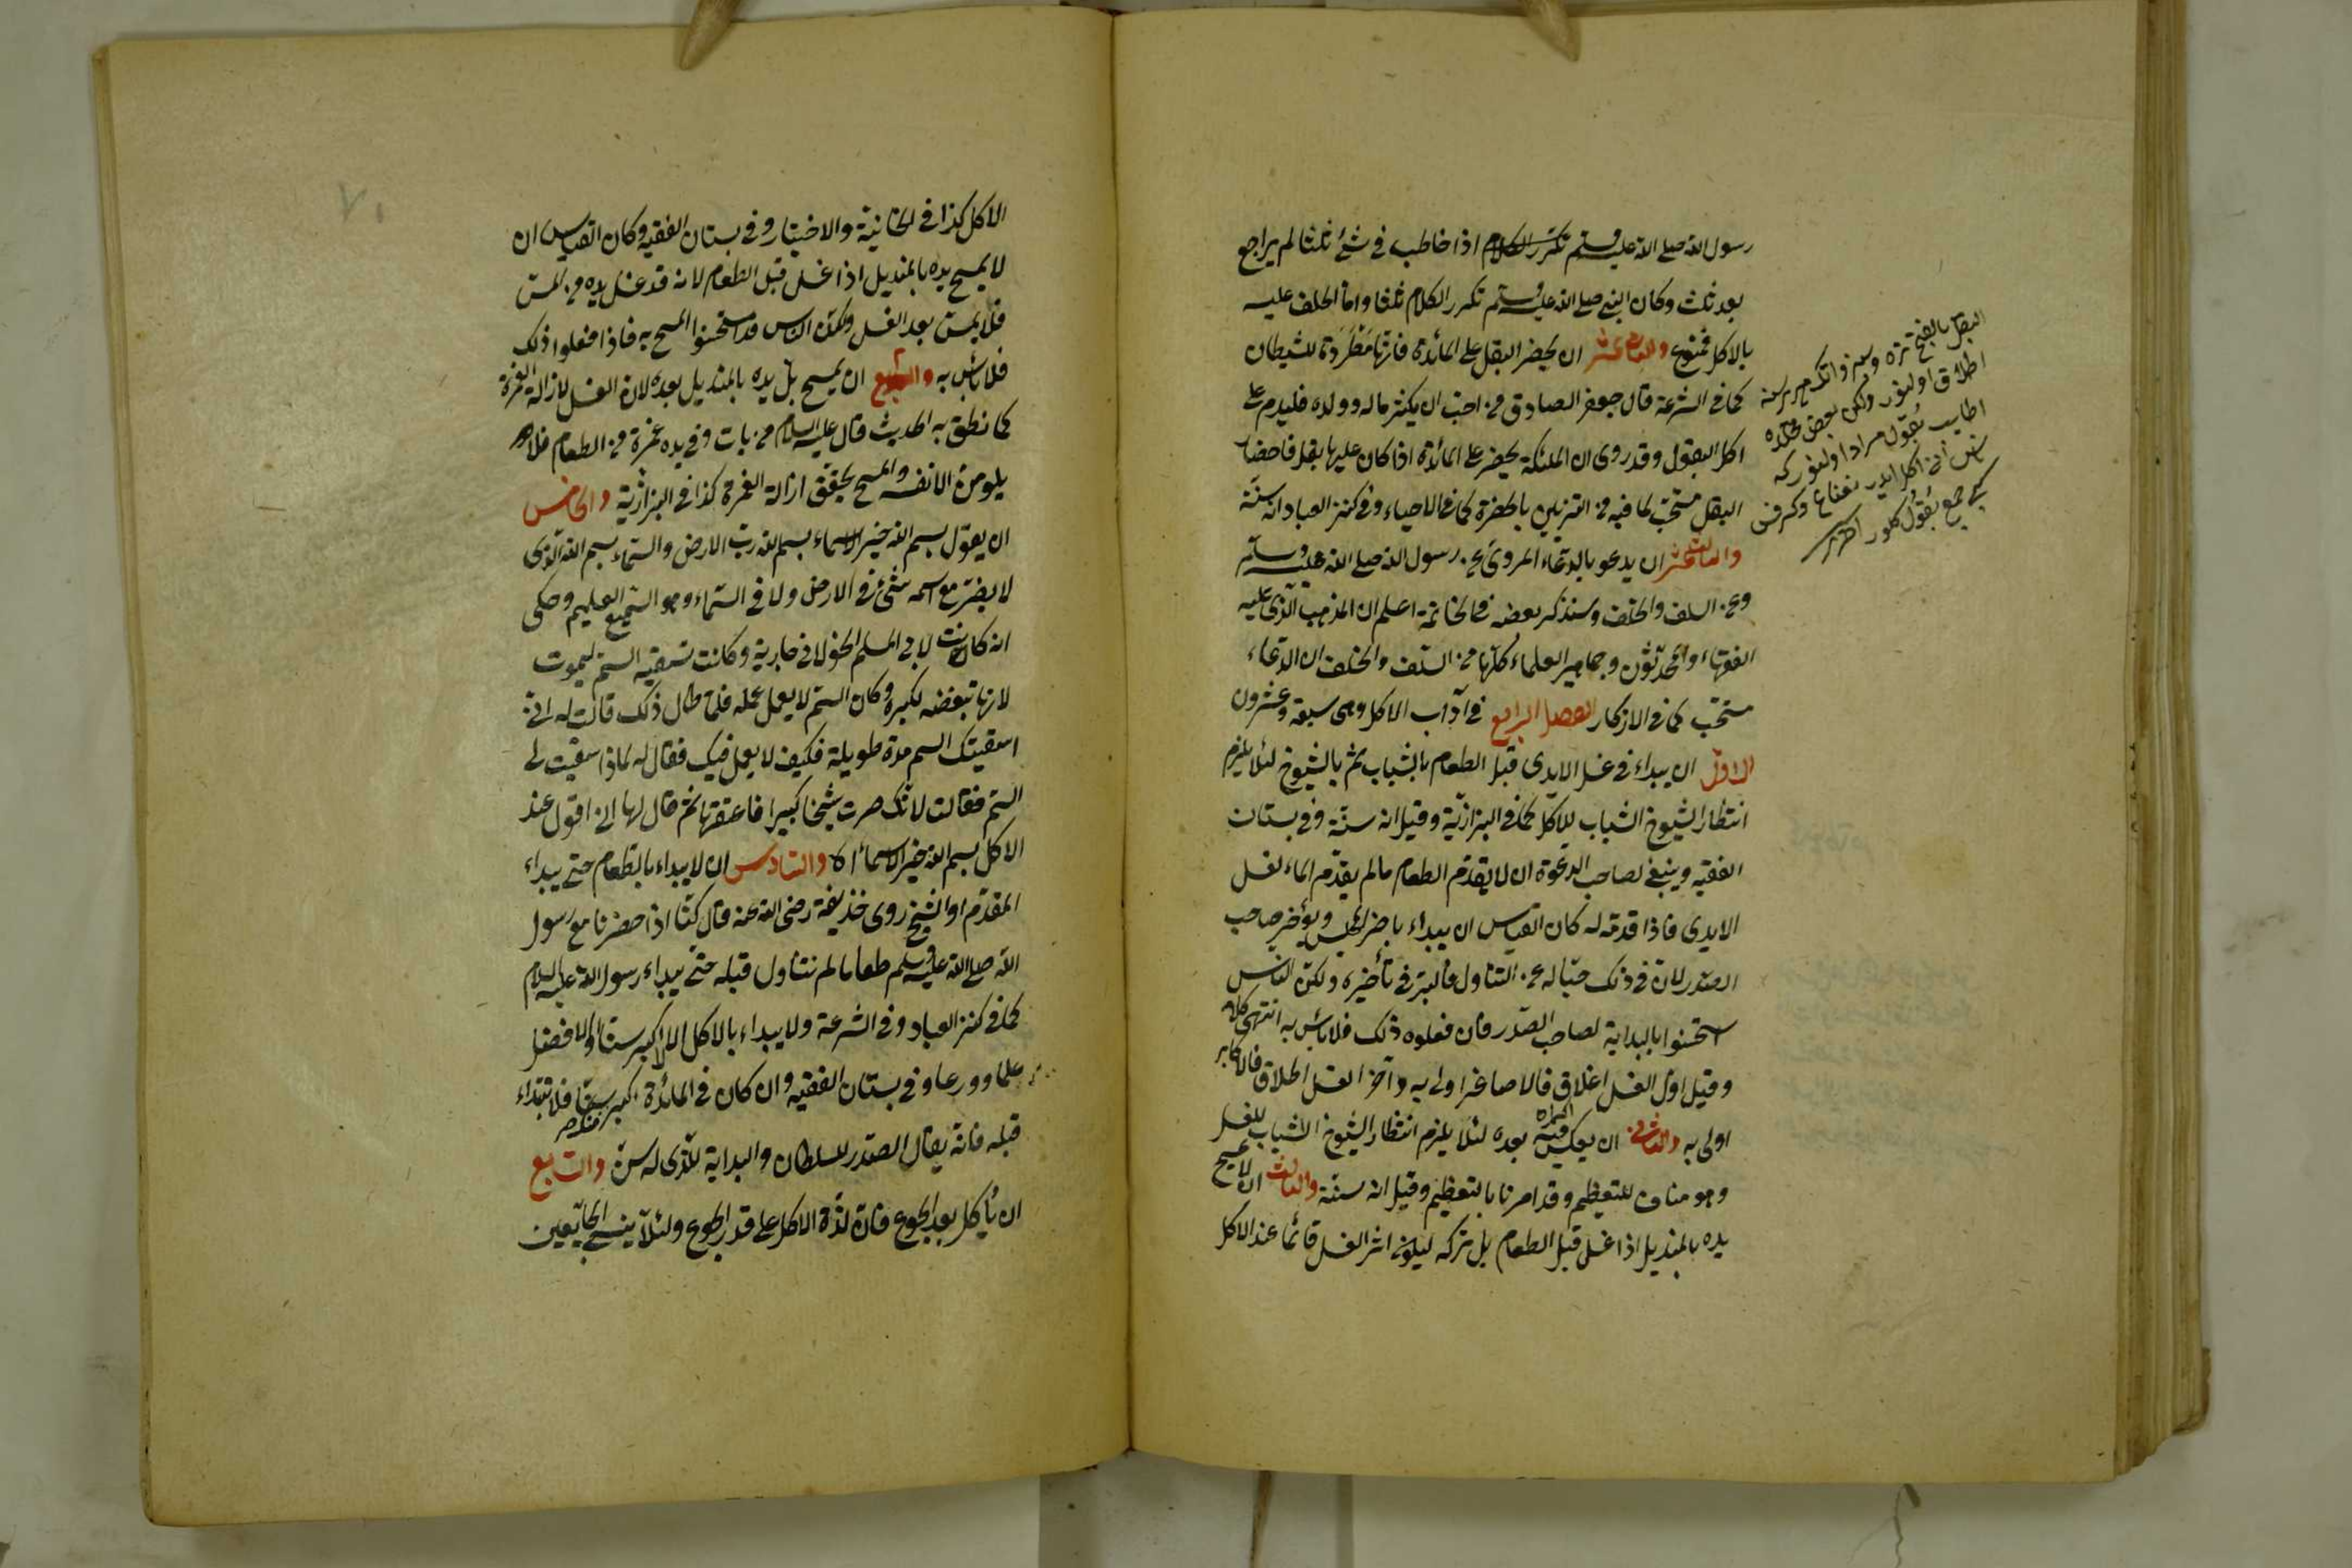 رسول الله صلى الله عليه وسلم تكرر الكلام اذا خاطب فى شئ ثلثا لم يراجع
بعد ثلث وكان النبى صلى الله عليه وسلم تكرر الكلام ثلثا واما الحلف عليه
بالاكل فممنوع والثانى عشر ان يحضر البقل على المائدة فانها مطردة للشيطان
كما فى الشرعة قال جعفر الصادق من احب ان يكثر ماله وولده فليدم على
اكل البقول وقد روى ان الملئكة يحضر على المائدة اذا كان عليها بقل فاحضار
البقل مستحب لما فيه من التزيين بالخضرة كما فى الاحياء وفى كنز العباد انه سنة
والثالث عشر ان يدعو بالدعاء المروى عن رسول الله صلى الله عليه وسلم
وعن السلف والخلف وسنذكر بعضه فى الخاتمة اعلم ان المذهب الذى عليه
الفقهاء والمحدثون وجماهير العلماء كلها من السلف والخلف ان الدعاء
مستحب كما فى الاذكار الفصل الرابع فى آداب الاكل وهى سبعة وعشرون
الاول ان يبداء فى غسل الايدى قبل الطعام بالشباب ثم بالشيوخ لئلا يلزم
انتظار الشيوخ الشباب للاكل كما فى البزازية وقيل انه سنة وفى بستان
الفقيه وينبغى لصاحب الدعوة ان لا يقدم الطعام مالم يقدم الماء لغسل
الايدى فاذا قدمه له كان القياس ان يبداء باخر المجلس ويؤخر صاحب
الصدر لان فى ذلك حبسا له عن التناول فالبر فى تأخيره ولكن الناس
استحسنوا بالبداية لصاحب الصدر فان فعلوه ذلك فلا بأس به انتهى كلامه
وقيل اول الغسل اغلاق فالاصاغر اولى به وآخر الغسل اطلاق فالاكابر
اولى به والثانى ان يعكس بعده لئلا يلزم انتظار الشيوخ الشباب للغسل
وهو مناف للتعظيم وقد امرنا بالتعظيم وقيل انه سنة والثالث ان لا يمسح
يده بالمنديل اذا غسل قبل الطعام بل يتركه ليكون اثر الغسل قائما عند الاكل
البقل بالفتح تره
اطلاق اولنور ولكن بعض
اطايب بقول مراد اولنور كه
نعناع وكرفس
جمع بقول كلور اخترى
الاكل كذا فى الخانية والاختيار وفى بستان الفقيه وكان القياس ان
لا يمسح يده بالمنديل اذا غسل قبل الطعام لانه قد غسل يده من المس
فلا يمس بعد الغسل ولكن الناس قد استحسنوا المسح به فاذا فعلوا ذلك
فلا بأس به والرابع ان يمسح بل يده بالمنديل بعده لان الغسل لازالة الغمرة
كما نطق به الحديث قال عليه السلام من بات وفى يده غمرة من الطعام فلا
يلومن الا نفسه والمسح يحقق ازالة الغمرة كذا فى البزازية والخامس
ان يقول بسم الله خير الاسماء بسم الله رب الارض والسماء بسم الله الذى
لا يضر مع اسمه شئ فى الارض ولا فى السماء وهو السميع العليم وحكى
انه كانت لابى المسلم الخولانى جارية وكانت تسقيه السم ليموت
لانها تبغضه لكبره وكان السم لا يعمل عمله فلما طال ذلك قالت له انى
اسقيتك السم مدة طويلة فكيف لا يعمل فيك فقال له لماذا سقيت لى
السم فقالت لانك صرت شيخا كبيرا فاعتقها ثم قال لها انى اقول عند
الاكل بسم الله خير الاسماء الخ والسادس ان لا يبداء بالطعام حتى يبداء
المقدم او الشيخ روى حذيفة رضى الله عنه قال كنا اذا حضرنا مع رسول
الله صلى الله عليه وسلم طعاما لم نتناول قبله حتى يبداء رسول الله عليه السلام
كما فى كنز العباد وفى الشرعة ولا يبداء بالاكل الا الاكبر سنا والا فضل
علما وورعا وفى بستان الفقيه وان كان فى المائدة اكبر سنا منك فلا تبتداء
قبله فانه يقال الصدر للسلطان والبداية للذى له سن والسابع
ان يأكل بعد الجوع فان لذة الاكل على قدر الجوع ولئلا ينسى الجائعين